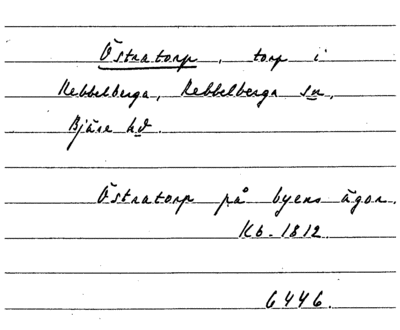 Östratorp, torp i
Rebbelberga, Rebbelberga sn,
Bjäre hd.
Östratorp på byens ägor.
Kb. 1812
6446.